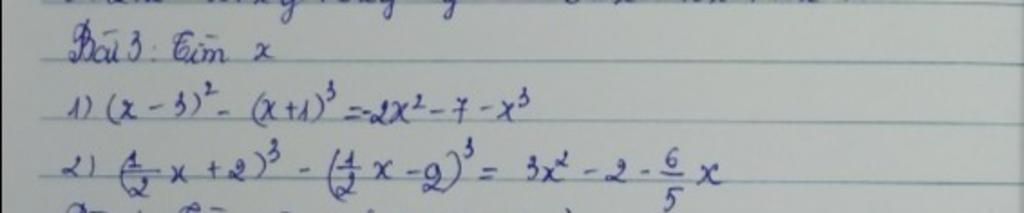 Bài 3: Tìm x
1) (x - 3)² - (x + 1)³ = -2x² - 7 - x³
2) (1/2 x + 2)³ - (1/2 x - 2)³ = 3x² - 2 - 6/5 x